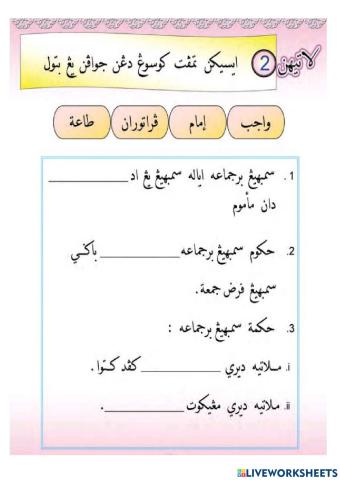 لاتيهن 2 ايسيكن تمڤت كوسوڠ دڠن جواڤن يڠ بتول
واجب إمام ڤراتوران طاعة
1. سمبهيڠ برجماعه اياله سمبهيڠ يڠ اد__________
دان مأموم
2. حكوم سمبهيڠ برجماعه__________باݢي
سمبهيڠ فرض جمعة.
3. حكمة سمبهيڠ برجماعه :
i. مـلاتيه ديري __________كڤد كتوا.
ii. ملاتيه ديري مڠيكوت__________.
LIVEWORKSHEETS